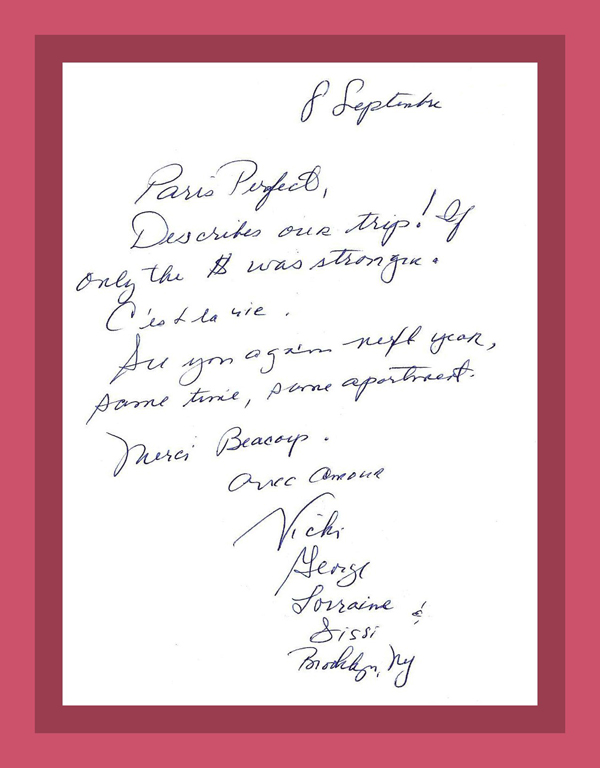 8 Septembre
Paris Perfect,
Describes our trip! If
only the $ was stronger.
C'est la vie.
See you again next year,
same time, same apartment.
Merci Beacoup.
avec amour
Vicki
George
Lorraine &
Sissi
Brooklyn, NY